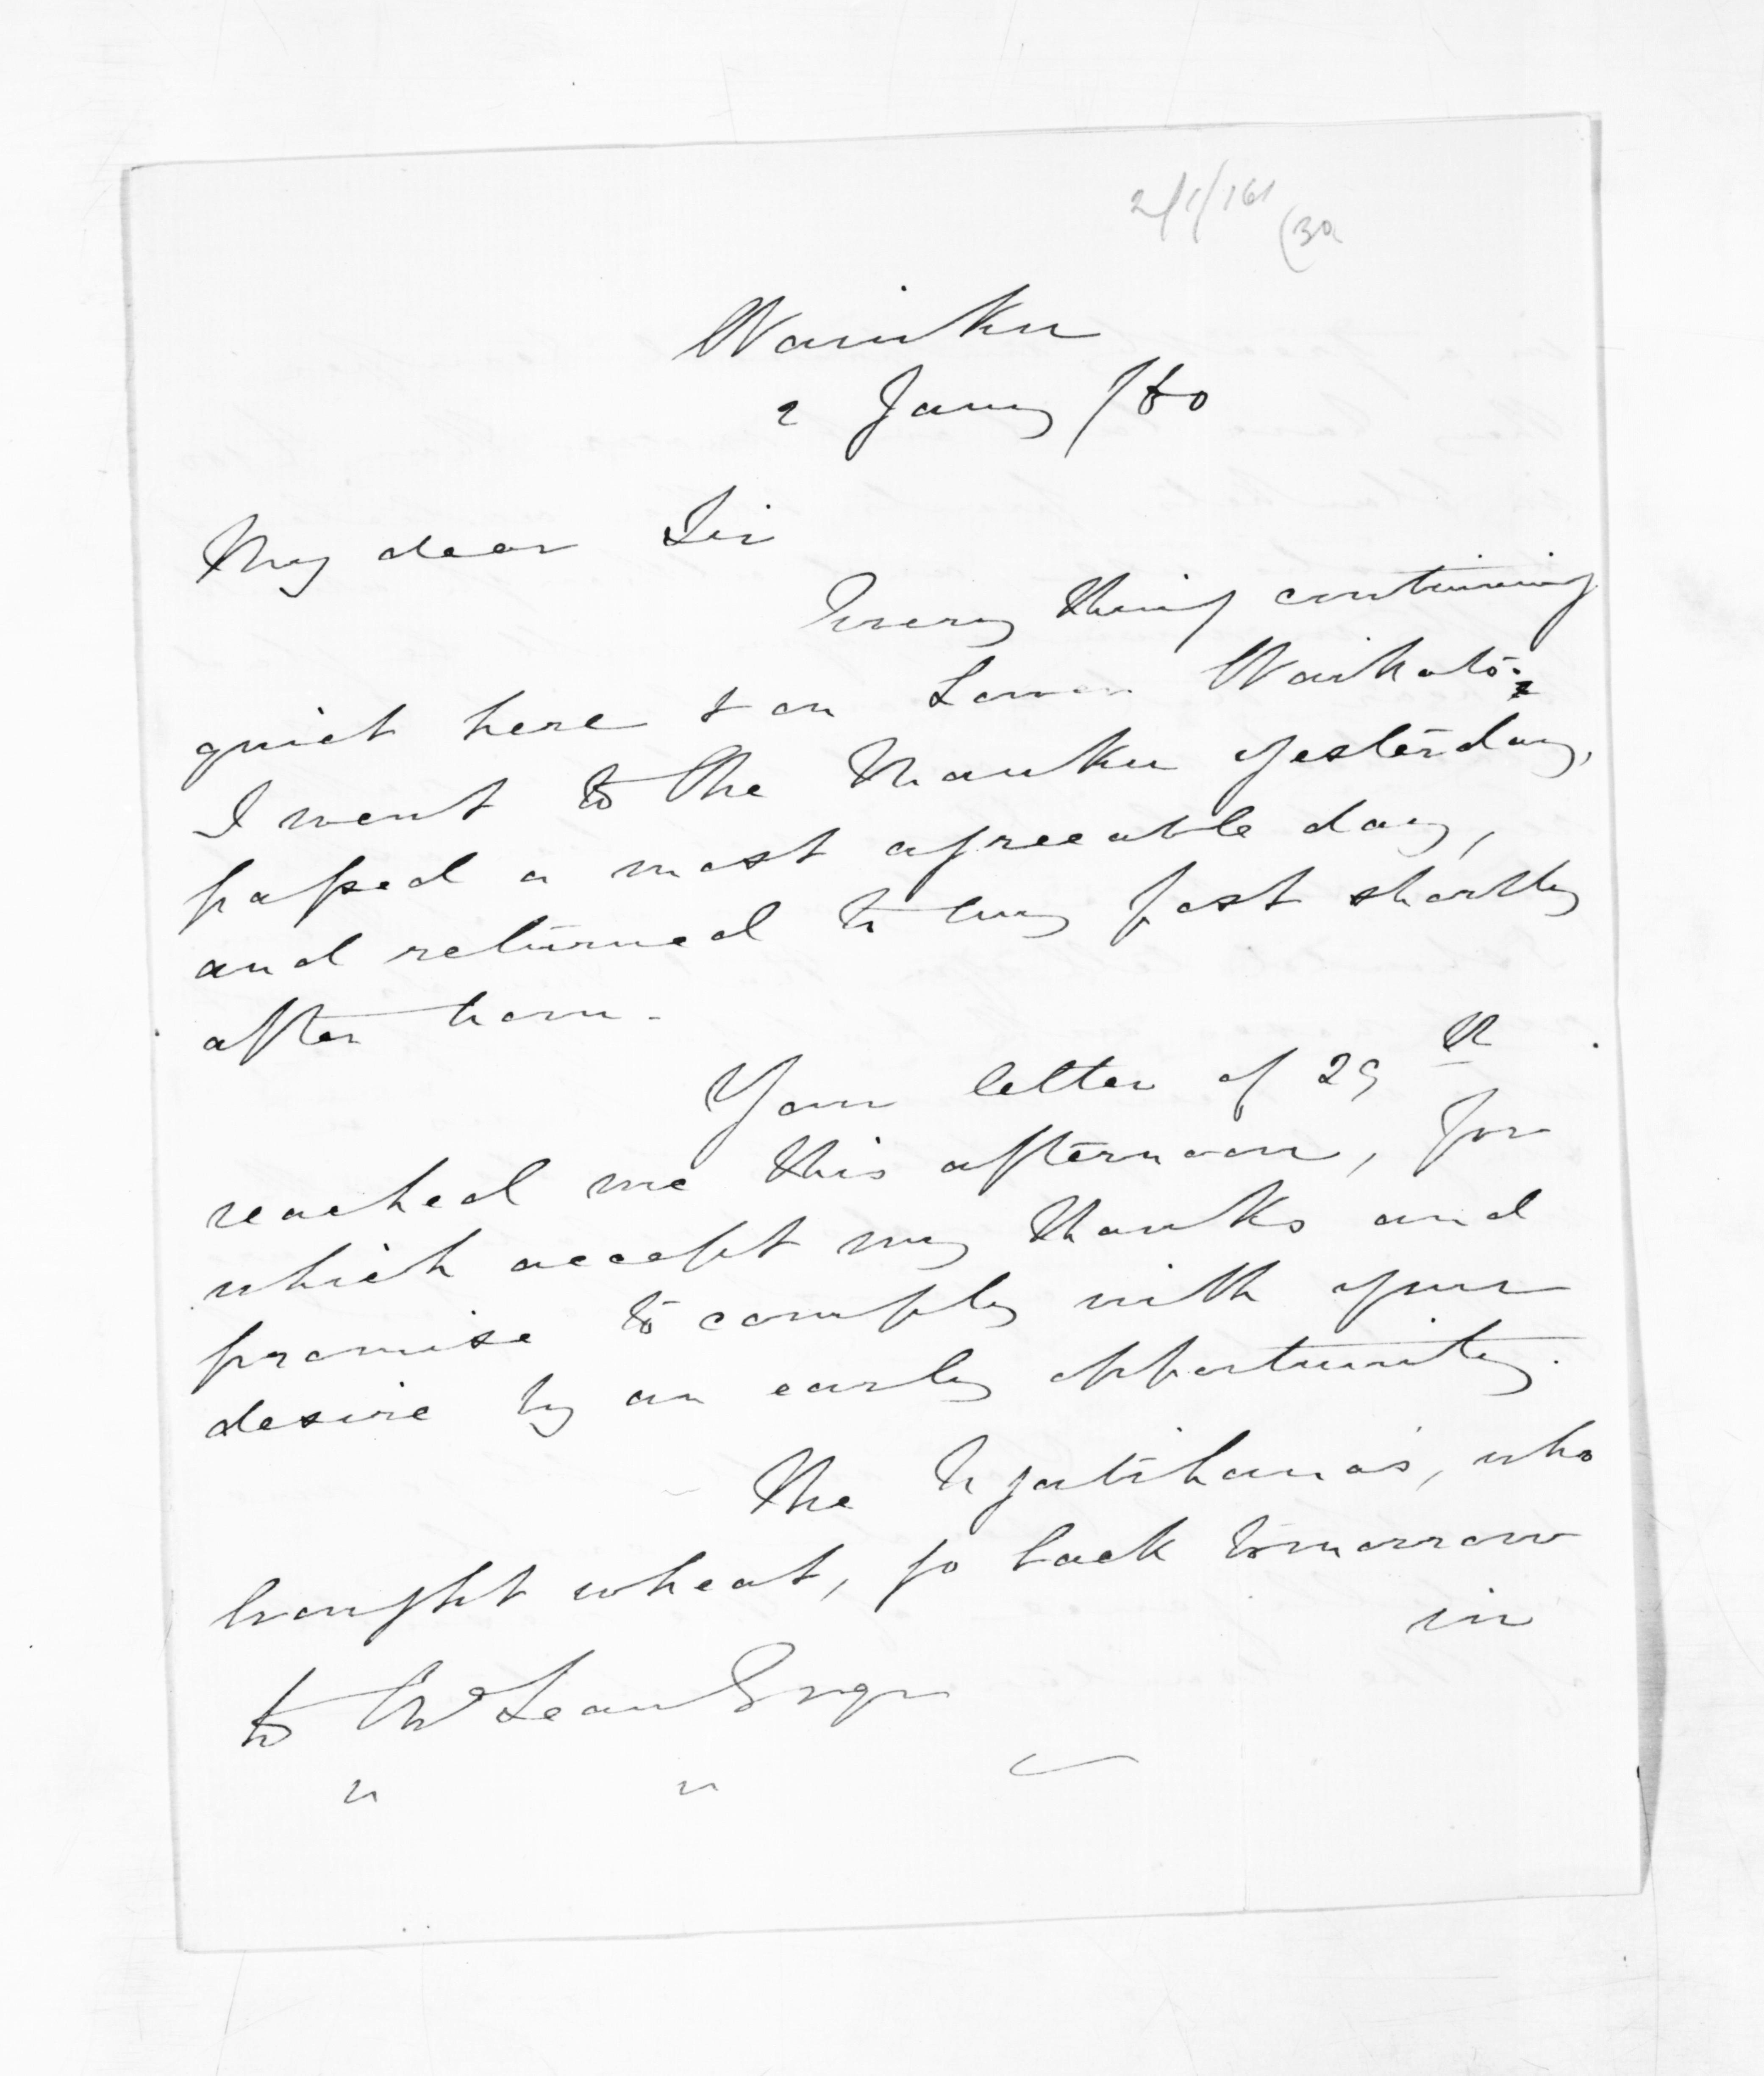 2/1/161
(30
Waiuku
2 Jany /60
My dear Sir
Every thing continuing
quiet here & on Lower Waikato,
I went to the Mauku yesterday,
passed a most agreeable day,
and returned to my post shortly
after
Your letter of 29th
reached me this afternoon, for
which accept my thanks and
promise to comply with your
desire by an early opportunity.
The Ngatihauas, who
brought wheat, go back tomorrow
in
to McLean Esqr
" "